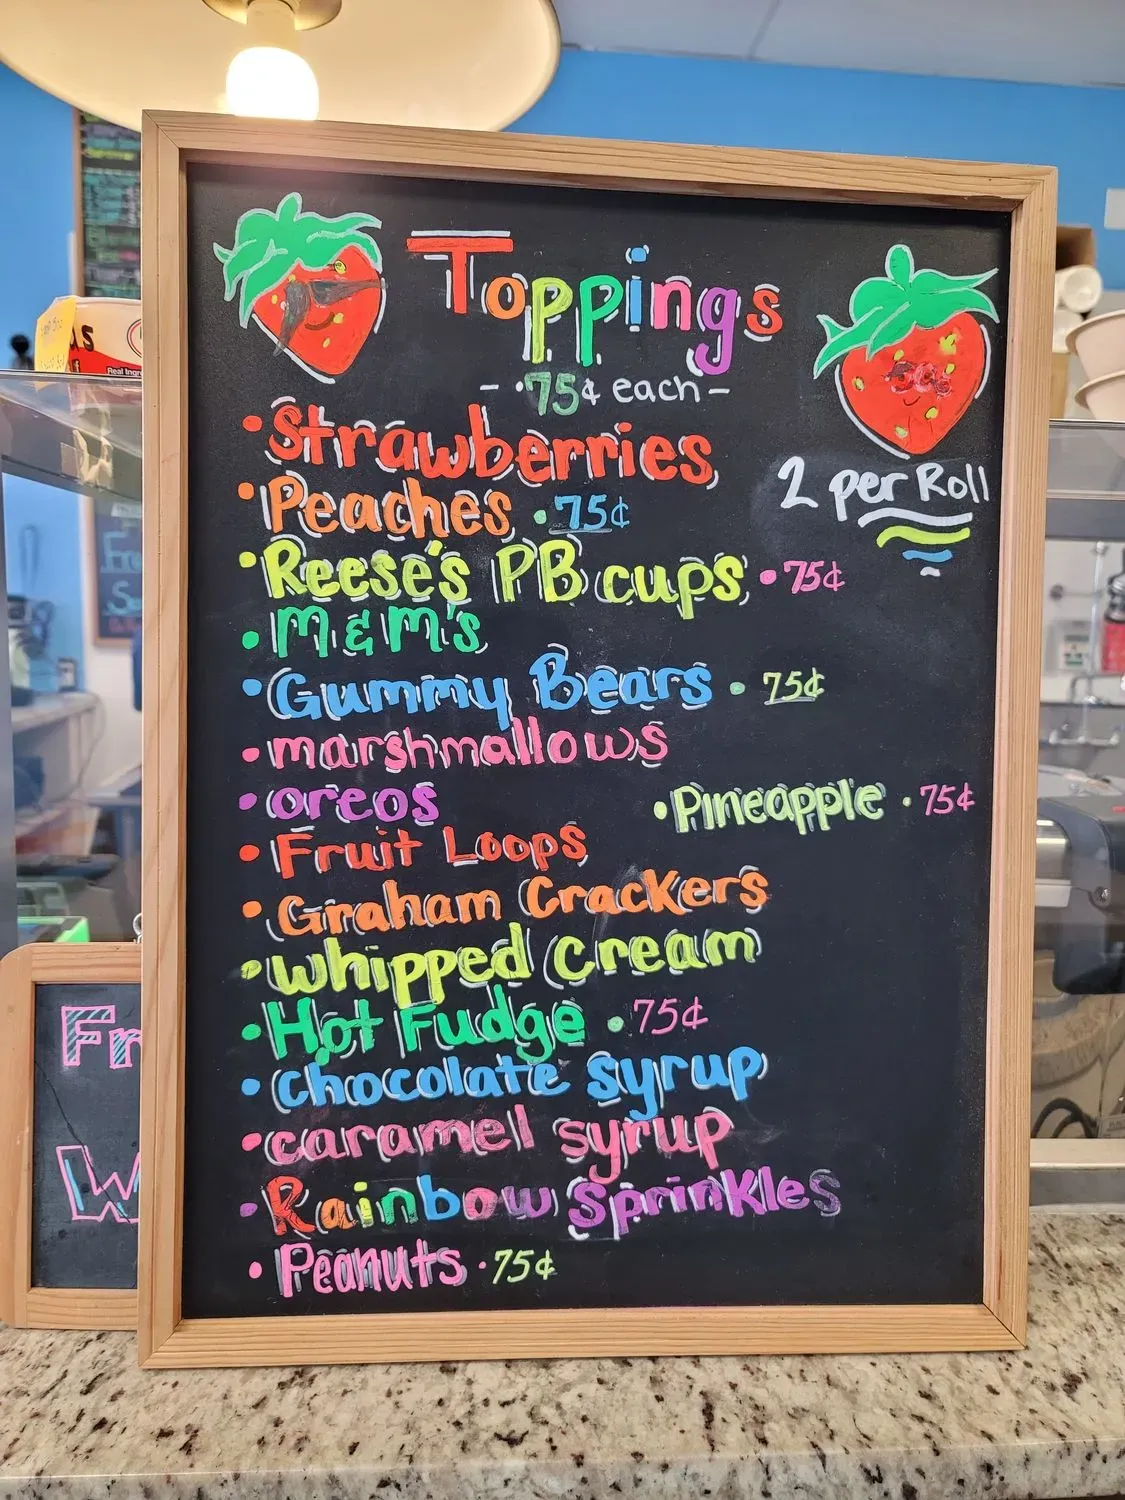 Toppings
- .75¢ each -
• Strawberries
2 per Roll
• Peaches • 75¢
• Reese's PB cups • 75¢
• M&M's
• Gummy Bears • 75¢
• marshmallows
• oreos
• Pineapple • 75¢
• Fruit Loops
• Graham Crackers
• whipped cream
• Hot Fudge • 75¢
• chocolate syrup
• caramel syrup
• Rainbow Sprinkles
• Peanuts • 75¢
Fr
W
Real